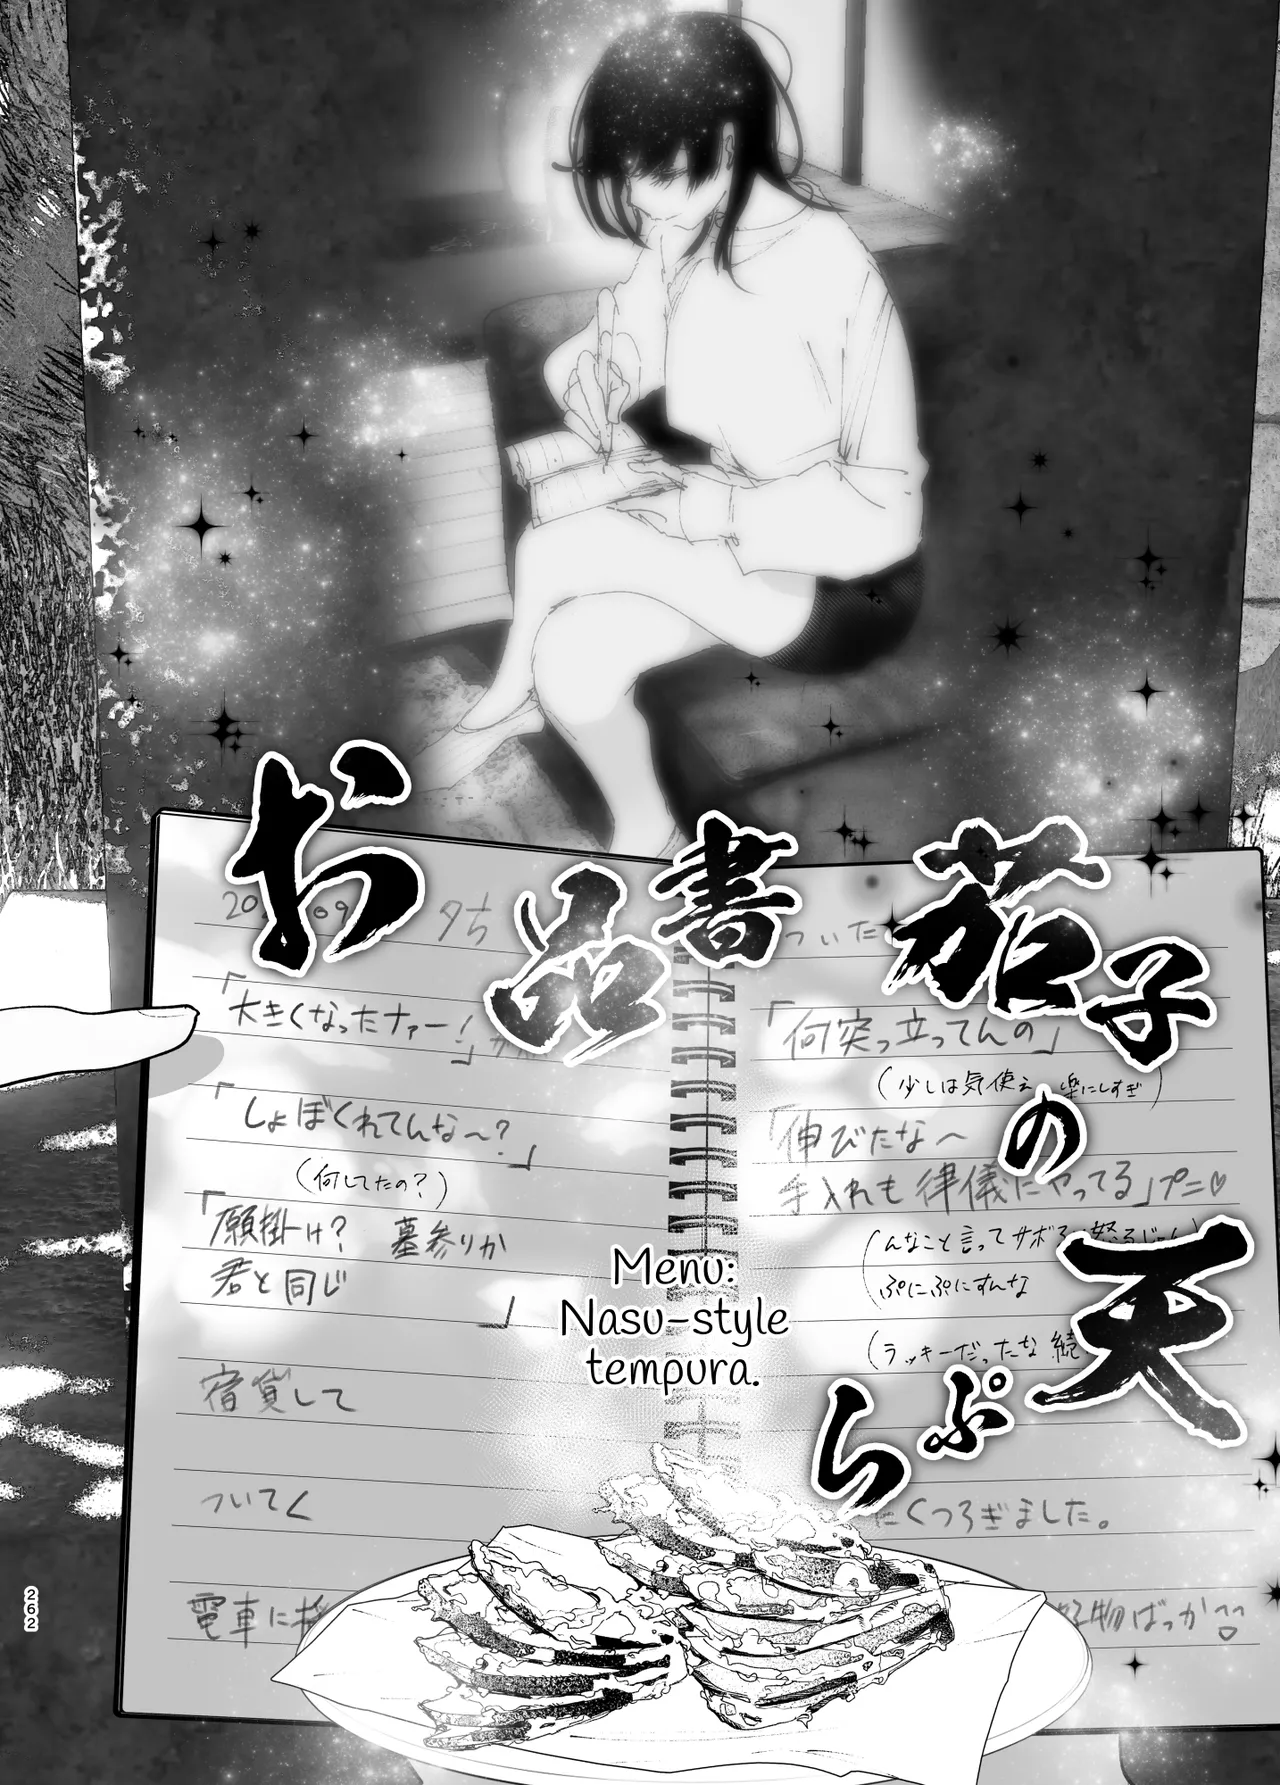 お品書
茄子の
天ぷら
Menu:
Nasu-style
tempura.
夕
「大きくなったナァー！」
「しょぼくれてんな〜？」
（何してたの？）
「願掛け？ 墓参りか
君と同じ
」
宿貸して
ついてく
電車に
ついた
「何突っ立ってんの」
（少しは気使え 楽にしすぎ）
「伸びたな〜
手入れも律儀にやってる」プニ♡
んなこと言ってサボる
ぷにぷにすんな
（ラッキーだったな 続
くつろぎました。
物ばっか
262